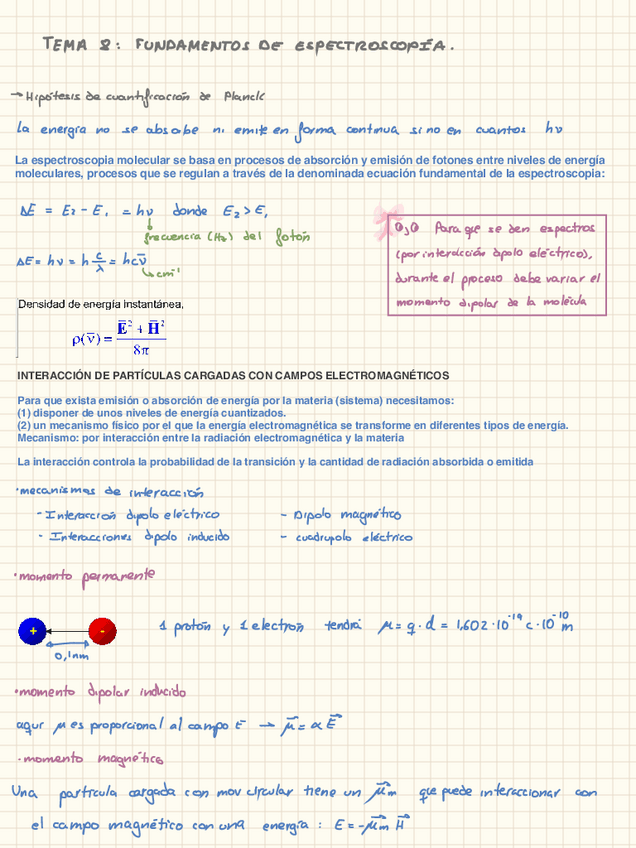 TEMA 8: FUNDAMENTOS DE ESPECTROSCOPÍA.
→ Hipótesis de cuantificación de Planck
la energía no se absorbe ni emite en forma continua sino en cuantos hν
La espectroscopia molecular se basa en procesos de absorción y emisión de fotones entre niveles de energía
moleculares, procesos que se regulan a través de la denominada ecuación fundamental de la espectroscopia:
ΔE = E₂ - E₁ = hν donde E₂ > E₁
frecuencia (Hz) del fotón
ΔE = hν = h c/λ = hcν̄
↳ cm⁻¹
OJO Para que se den espectros
(por interacción dipolo eléctrico),
durante el proceso debe variar el
momento dipolar de la molécula
Densidad de energía instantánea,
ρ(ν̄) = (E̅² + H̅²) / 8π
INTERACCIÓN DE PARTÍCULAS CARGADAS CON CAMPOS ELECTROMAGNÉTICOS
Para que exista emisión o absorción de energía por la materia (sistema) necesitamos:
(1) disponer de unos niveles de energía cuantizados.
(2) un mecanismo físico por el que la energía electromagnética se transforme en diferentes tipos de energía.
Mecanismo: por interacción entre la radiación electromagnética y la materia
La interacción controla la probabilidad de la transición y la cantidad de radiación absorbida o emitida
·mecanismos de interacción
- Interacción dipolo eléctrico - Dipolo magnético
- Interacciones dipolo inducido - cuadrupolo eléctrico
·momento permanente
+ -
0,1nm
1 protón y 1 electrón tendrá μ = q · d = 1,602 · 10⁻¹⁹ C · 10⁻¹⁰ m
·momento dipolar inducido
aquí μ es proporcional al campo E → μ⃗ = α E⃗
·momento magnético
Una partícula cargada con mov circular tiene un μ⃗m que puede interaccionar con
el campo magnético con una energía : E = -μ⃗m H⃗